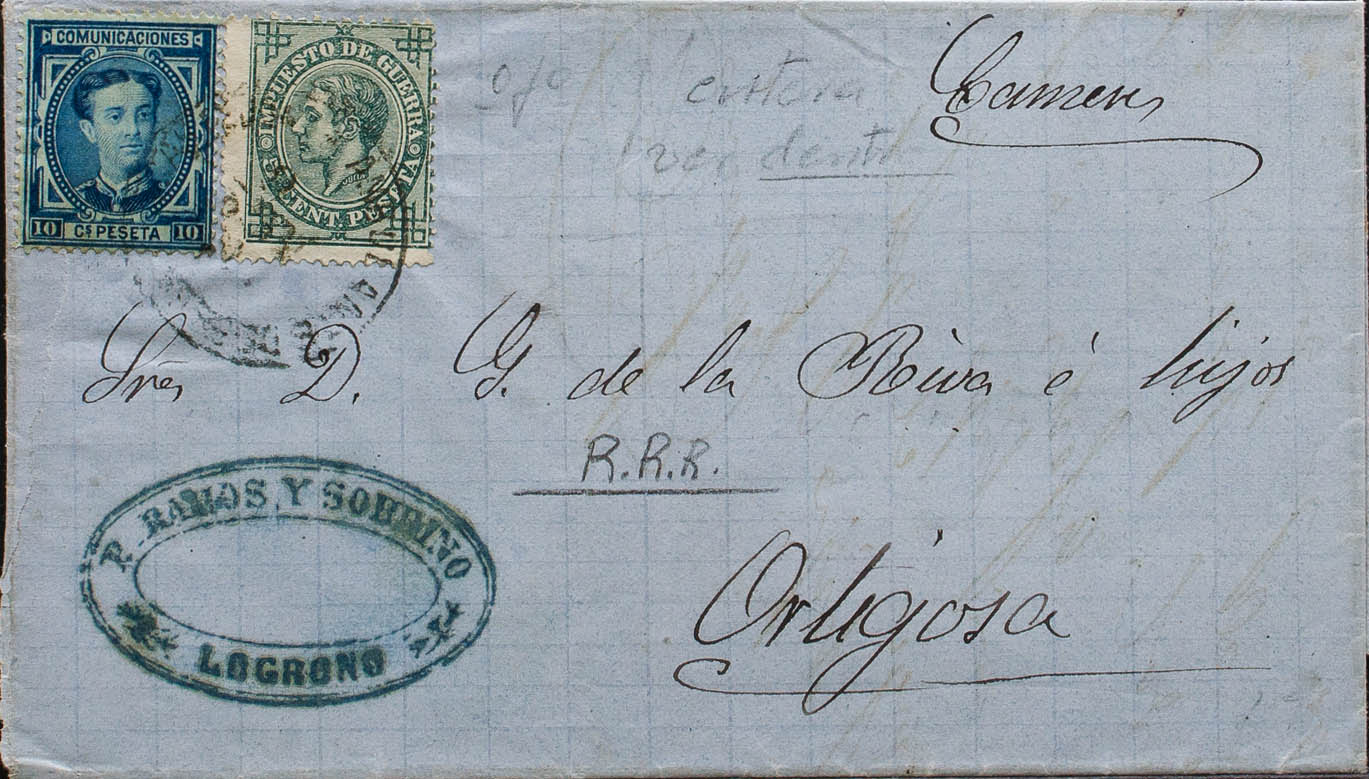 COMUNICACIONES
10 Cs PESETA 10
IMPUESTO DE GUERRA
5 CENT. PESETA
Cameros
ojo
ver dentro
Sres D. G. de la Riva é hijos
R.R.R.
Ortigosa
R. RAMOS Y SOBRINO
LOGROÑO